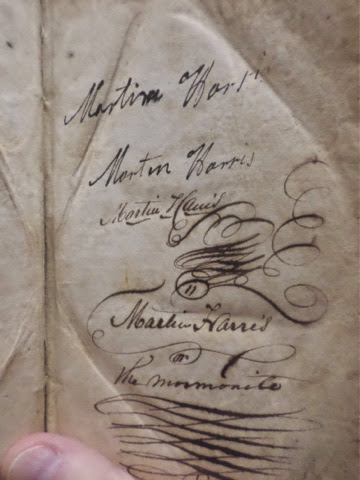 Martin Harri
Martin Harris
Martin Harris
Martin Harris
or
the mormonite